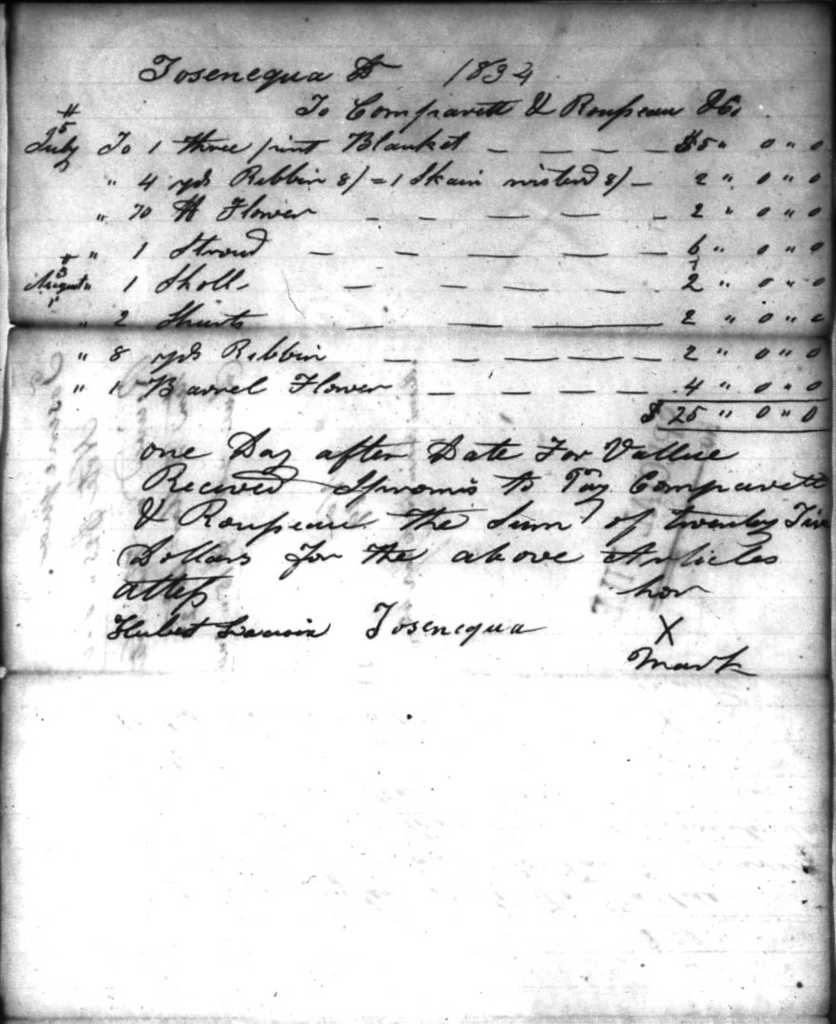 Tosenequa Dr 1834
To Comparett & Roupeau & Co
July 5 To 1 three pint Blanket $5 " 0 " 0
" 4 yds Ribbin 8/ = 1 Skain wisted 8/ 2 " 0 " 0
" 70 # Flower 2 " 0 " 0
" 1 Stroud 6 " 0 " 0
August " 1 Sholl 2 " 0 " 0
" 2 Shirts 2 " 0 " 0
" 8 yds Ribbin 2 " 0 " 0
" 1 Barrel Flower 4 " 0 " 0
$ 25 " 0 " 0
one Day after Date For Vallue
Recived I promis to Pay Comparett
& Roupeau the Sum of twenty Five
Dollars for the above Articles
attest hor
Hubert Tosenequa X
Mark